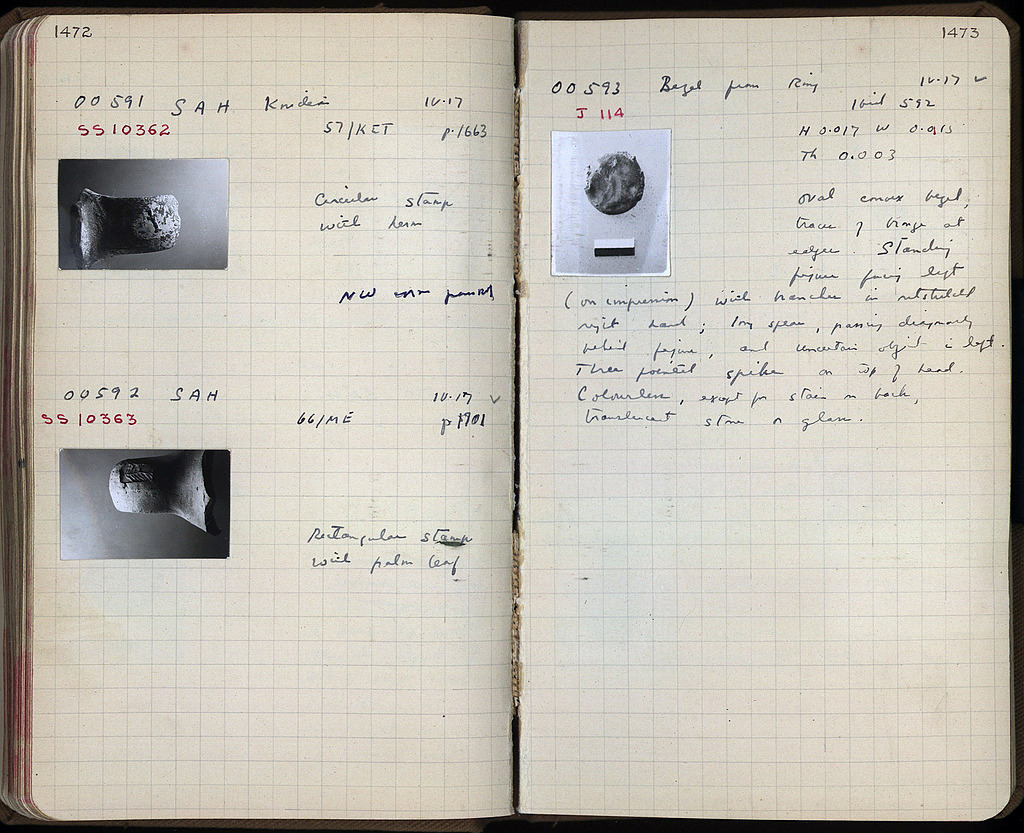 1472
OO 591 SAH Knidian IV.17
SS 10362 57/KET p.1663
Circular stamp
with herm
NW
OO 592 SAH IV.17 ✓
SS 10363 66/ME p 1701
Rectangular stamp
with palm leaf
1473
OO 593 Bezel from Ring IV.17 ✓
J 114 Ibid 592
H 0.017 W 0.013
Th 0.003
Oval convex bezel,
traces of bronze at
edges. Standing
figure facing left
(on impression) with branches in outstretched
right hand; long spear, passing diagonally
behind figure, and uncertain object in left.
Three pointed spikes on top of head.
Colourless, except for stain on back,
translucent stone or glass.